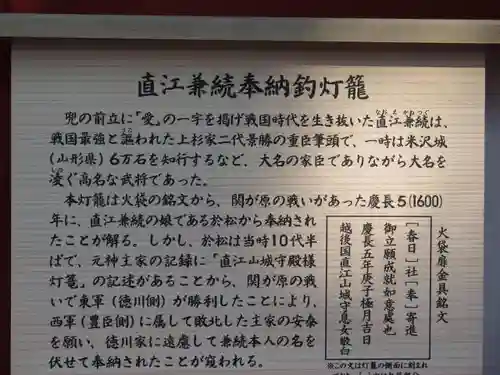 直江兼続奉納釣灯籠
兜の前立に「愛」の一字を掲げ戦国時代を生き抜いた直江兼続は、
戦国最強と謳われた上杉家二代景勝の重臣筆頭で、一時は米沢城
(山形県)6万石を知行するなど、大名の家臣でありながら大名を
凌ぐ高名な武将であった。
本灯籠は火袋の銘文から、関が原の戦いがあった慶長5(1600)
年に、直江兼続の娘である於松から奉納され
たことが解る。しかし、於松は当時10代半
ばで、元神主家の記録に「直江山城守殿様
灯篭」の記述があることから、関が原の戦
いで東軍(徳川側)が勝利したことにより、
西軍(豊臣側)に属して敗北した主家の安泰
を願い、徳川家に遠慮して兼続本人の名を
伏せて奉納されたことが窺われる。
火袋扉金具銘文
[春日]社[奉]寄進
御立願成就如意莫也
慶長五年庚子極月吉日
越後国直江山城守息女敬白
※この文は灯籠の側面に刻まれ